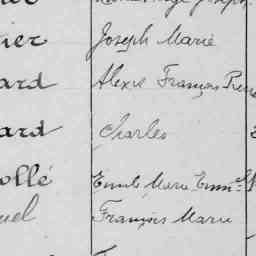 Joseph
ier Joseph Marie
ard Alexis François René
ard Charles
ollé Emile Marie
uel François Marie